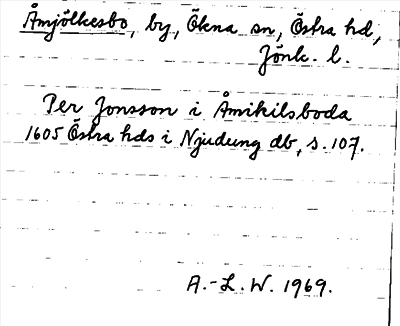 Åmjölkesbo, by, Ökna sn, Östra hd,
Jönk. l.
Per Jonsson i Åmikilsboda
1605 Östra hds i Njudung db, s. 107.
A.-L. W. 1969.